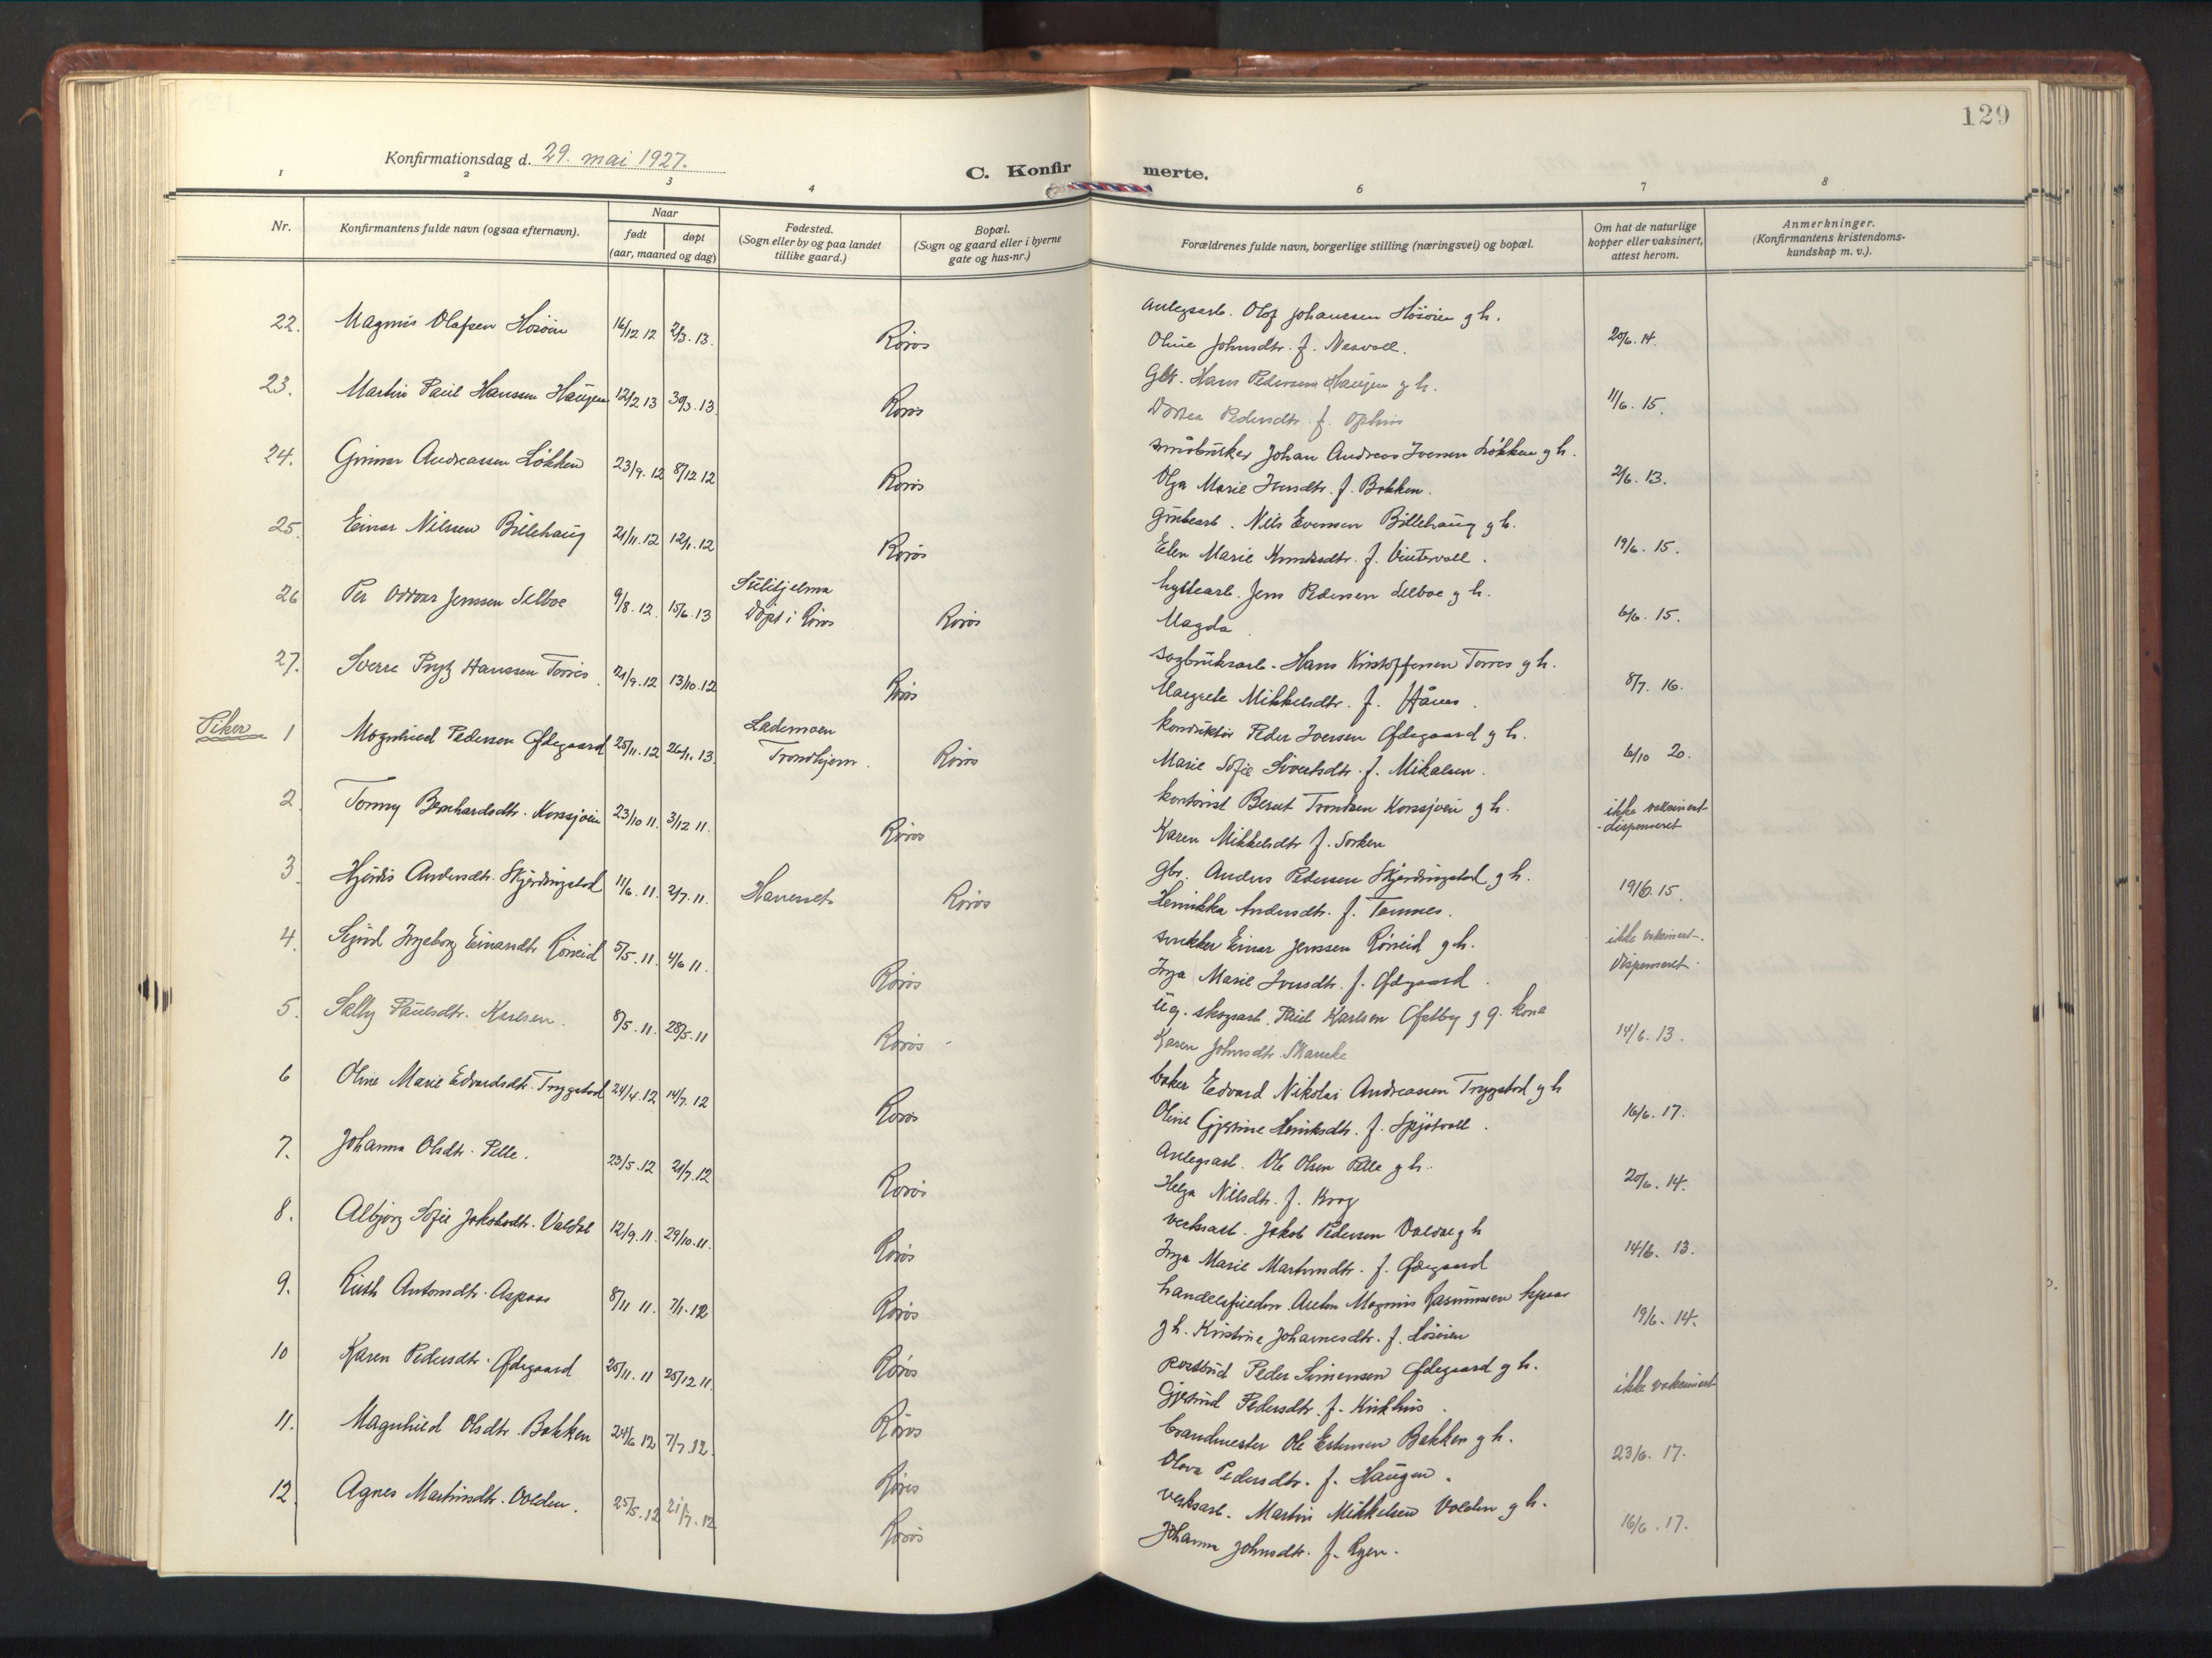 129
Konfirmationsdag d. 29. mai 1927.
C. Konfirmerte.
1 2 3 4 6 7 8
Nr.
Konfirmantens fulde navn (ogsaa efternavn).
Naar
født døpt
(aar, maaned og dag)
Fødested.
(Sogn eller by og paa landet
tillike gaard.)
Bopæl.
(Sogn og gaard eller i byerne
gate og hus-nr.)
Forældrenes fulde navn, borgerlige stilling (næringsvei) og bopæl.
Om hat de naturlige
kopper eller vaksinert,
attest herom.
Anmerkninger.
(Konfirmantens kristendoms-
kundskap m. v.).
22. Magnus Olafsen Hosøien 16/12 12 2/3. 13. Røros
Anlegsarb. Olof Johanssen Hosøien g h.
Oline Johnsdtr. f. Nesvold. 20/6. 14.
23. Martin Paul Hanssen Haugen 12/2 13 30/3. 13. Røros
Gbr. Hans Pedersen Haugen g h.
Dortea Pedersdtr. f. Ophus 11/6. 15.
24. Gunnar Andreassen Løkken 23/9. 12 8/12 12 Røros
småbruker Johan Andreas Iversen Løkken g h.
Olga Marie Iversdtr. f. Bakken. 2/6. 13.
25. Einar Nilssen Billehaug 21/11. 12 12/1. 12 Røros
Grubearb. Nils Evensen Billehaug g h.
Elen Marie Knudsdtr. f. Vintervoll. 19/6. 15.
26 Per Oddvar Jenssen Selboe 9/8. 12. 15/6. 13 Sulitjelma
Døpt i Røros Røros
hyttearb. Jens Pedersen Selboe g h.
Magda 6/6. 15.
27. Sverre Prytz Hanssen Torres 21/9. 12 13/10. 12 Røros
sagbruksarb. Hans Kristoffersen Torres g h.
Margrete Mikkelsdtr. f. Hånes. 8/7. 16.
Piker
1 Magnhild Pedersen Ødegaard 25/11. 12 26/1. 13. Lademoen
Trondhjem. Røros
konduktør Peder Iversen Ødegaard g h.
Marie Sofie Sivertsdtr. f. Mikalsen. 6/10 20.
2. Tonny Bernhardsdtr. Korssjøen 23/10 11. 3/12 11. Røros
kontorist Bernt Trondsen Korssjøen g h.
Karen Mikkelsdtr f. Sorken
ikke vaksinert
- dispenseret
3. Hjørdis Andersdtr. Skjerdingstad 11/6. 11. 2/7. 11. Røros
gbr. Anders Pedersen Skjerdingstad g h.
Henrikka Andersdtr. f. Tamnes. 19/6. 15.
4. Sigrid Ingeborg Einarsdtr Røneid 5/5. 11. 4/6 11. Røros
snekker Einar Jenssen Røneid g h.
Inga Marie Iversdtr. f. Ødegaard.
ikke vaksinert.
Dispenseret.
5. Sally Paulsdtr. Karlsen. 8/5. 11. 28/5. 11 Røros
ug. skogsarb. Paul Karlsen Østby g g. kona
Karen Johnsdtr. Skancke 14/6. 13.
6 Oline Marie Edvardsdtr. Trygstad 24/4. 12 14/7. 12 Røros
baker Edvard Nikolai Andreassen Trygstad g h
Oline Gjertine Henriksdtr. f. Spjøtvoll. 16/6. 17.
7. Johanna Olsdtr. Pelle. 23/5. 12 21/7. 12 Røros
Anlegsarb. Ole Olsen Pelle g h.
Helga Nilsdtr. f. Krog 20/6. 14.
8. Albjørg Sofie Jakobsdtr. Valdal 12/9. 11. 29/10. 11. Røros
verksarb. Jakob Pedersen Valdal g h
Inga Marie Martinsdtr. f. Ødegaard 14/6. 13.
9. Ruth Antonsdtr. Aspaas 8/11 11. 7/1. 12 Røros
handelsfuldm. Anton Magnus Rasmussen Aspaas
g h. Kristine Johannesdtr. f. Hosøien 19/6. 14.
10 Karen Pedersdtr. Ødegaard 25/11. 11 25/12 11. Røros
postbud Peder Simensen Ødegaard g h.
Gjertrud Pedersdtr. f. Kirkhus. ikke vaksinert
11. Magnhild Olsdtr. Bakken 24/6 12 7/7. 12. Røros
brandmester Ole Estensen Bakken g h.
Olava Pedersdtr. f. Haugen. 23/6. 17.
12. Agnes Martinsdtr. Volden. 25/5. 12 21/7. 12 Røros
verksarb. Martin Mikkelsen Volden g h.
Johanna Johnsdtr. f. Ryen. 16/6. 17.
Røros